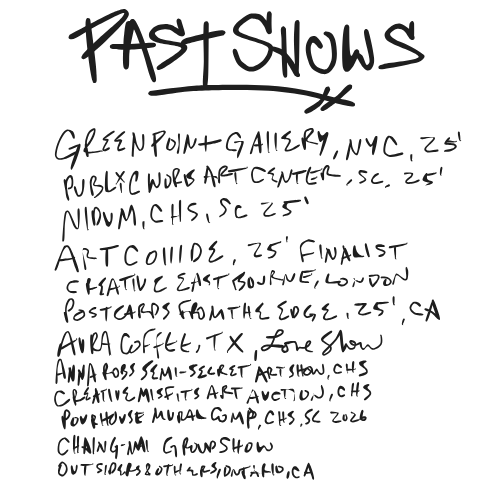 PAST SHOWS
GREENPOINT GALLERY, NYC, 25'
PUBLIC WORK ART CENTER, SC, 25'
NIDUM, CHS, SC 25'
ART COLLIDE, 25' FINALIST
CREATIVE EASTBOURNE, LONDON
POSTCARDS FROM THE EDGE, 25', CA
AURA COFFEE, TX, Love Show
ANNA ROBS SEMI-SECRET ART SHOW, CHS
CREATIVE MISFITS ART AUCTION, CHS
POURHOUSE MURAL COMP, CHS, SC 2026
CHAING-MAI GROUP SHOW
OUTSIDERS & OTHERS, ONTARIO, CA